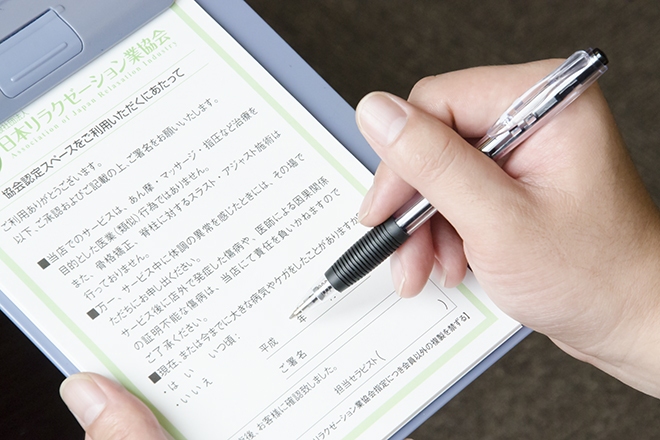 日本リラクゼーション業協会
Association of Japan Relaxation Industry
協会認定スペースをご利用いただくにあたって
ご利用ありがとうございます。
以下、ご承認およびご記載の上、ご署名をお願いいたします。
■当店でのサービスは、あん摩・マッサージ・指圧など治療を
目的とした医業(類似)行為ではありません。
また、骨格矯正、脊柱に対するスラスト・アジャスト施術は
行っておりません。
■万一、サービス中に体調の異常を感じたときには、その場で
ただちにお申し出ください。
サービス後に店外で発症した傷病や、医師による因果関係
の証明不能な傷病は、当店にて責任を負いかねますので
ご了承ください。
■現在、または今までに大きな病気やケガをしたことがありますか
・はい いつ頃:
・いいえ
平成 年
ご署名
後、お客様に確認致しました。 担当セラピスト( )
リラクゼーション業協会指定につき会員以外の複製を禁ずる】